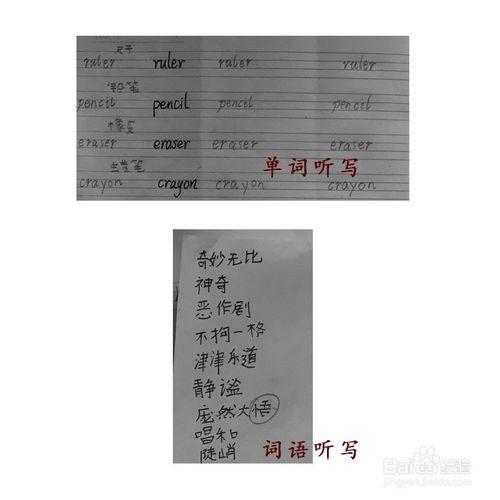 尺子
ruler ruler ruler ruler
铅笔
pencil pencil pencil pencil
橡皮
eraser eraser eraser eraser
蜡笔
crayon crayon crayon crayon
单词听写
奇妙无比
神奇
恶作剧
不拘一格
津津乐道
静谧
庞然大悟
唱和
陡峭
词语听写
Baidu经验
jingyan.baidu.com